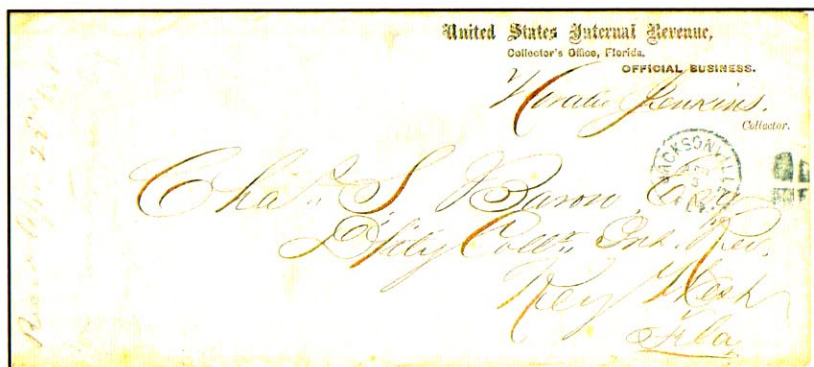 United States Internal Revenue,
Collector's Office, Florida.
OFFICIAL BUSINESS.
Horatio Jenkins.
Collector.
JACKSONVILLE
Chas. S. Baron, Esq
Dpty Collr. Int. Rev.
Key West
Fla